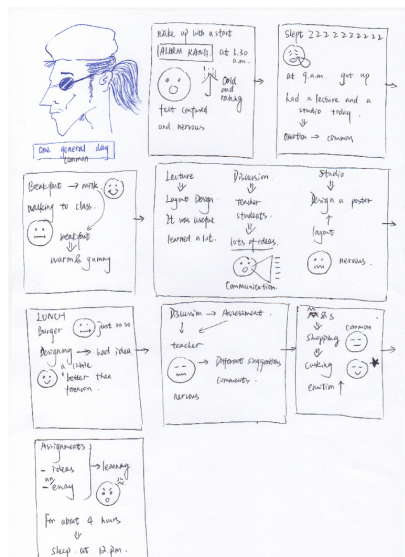 one general day
common
Wake up with a start
ALARM RANG at 5.30
a.m.
Cold
and
raining
felt confused
and nervous
Slept ZZZZZZZZZZ
at 9.a.m got up
had a lecture and a
studio today.
emotion → common
Breakfast → milk.
walking to class.
breakfast
warm & yummy
Lecture
Layout Design.
It was useful
learned a lot.
Discussion.
teacher
students.
lots of ideas.
Communication.
Studio
Design a poster
layout
nervous.
LUNCH
Burger
just so so
Designing → had idea.
a little
better than
Discussion → Assessment.
teacher
→ Different suggestions
comments.
nervous
M&S
Shopping
common
Cooking
emotion ↑
Assignments
- ideas
- essay
→ learning
For about 4 hours
sleep at 12 pm.